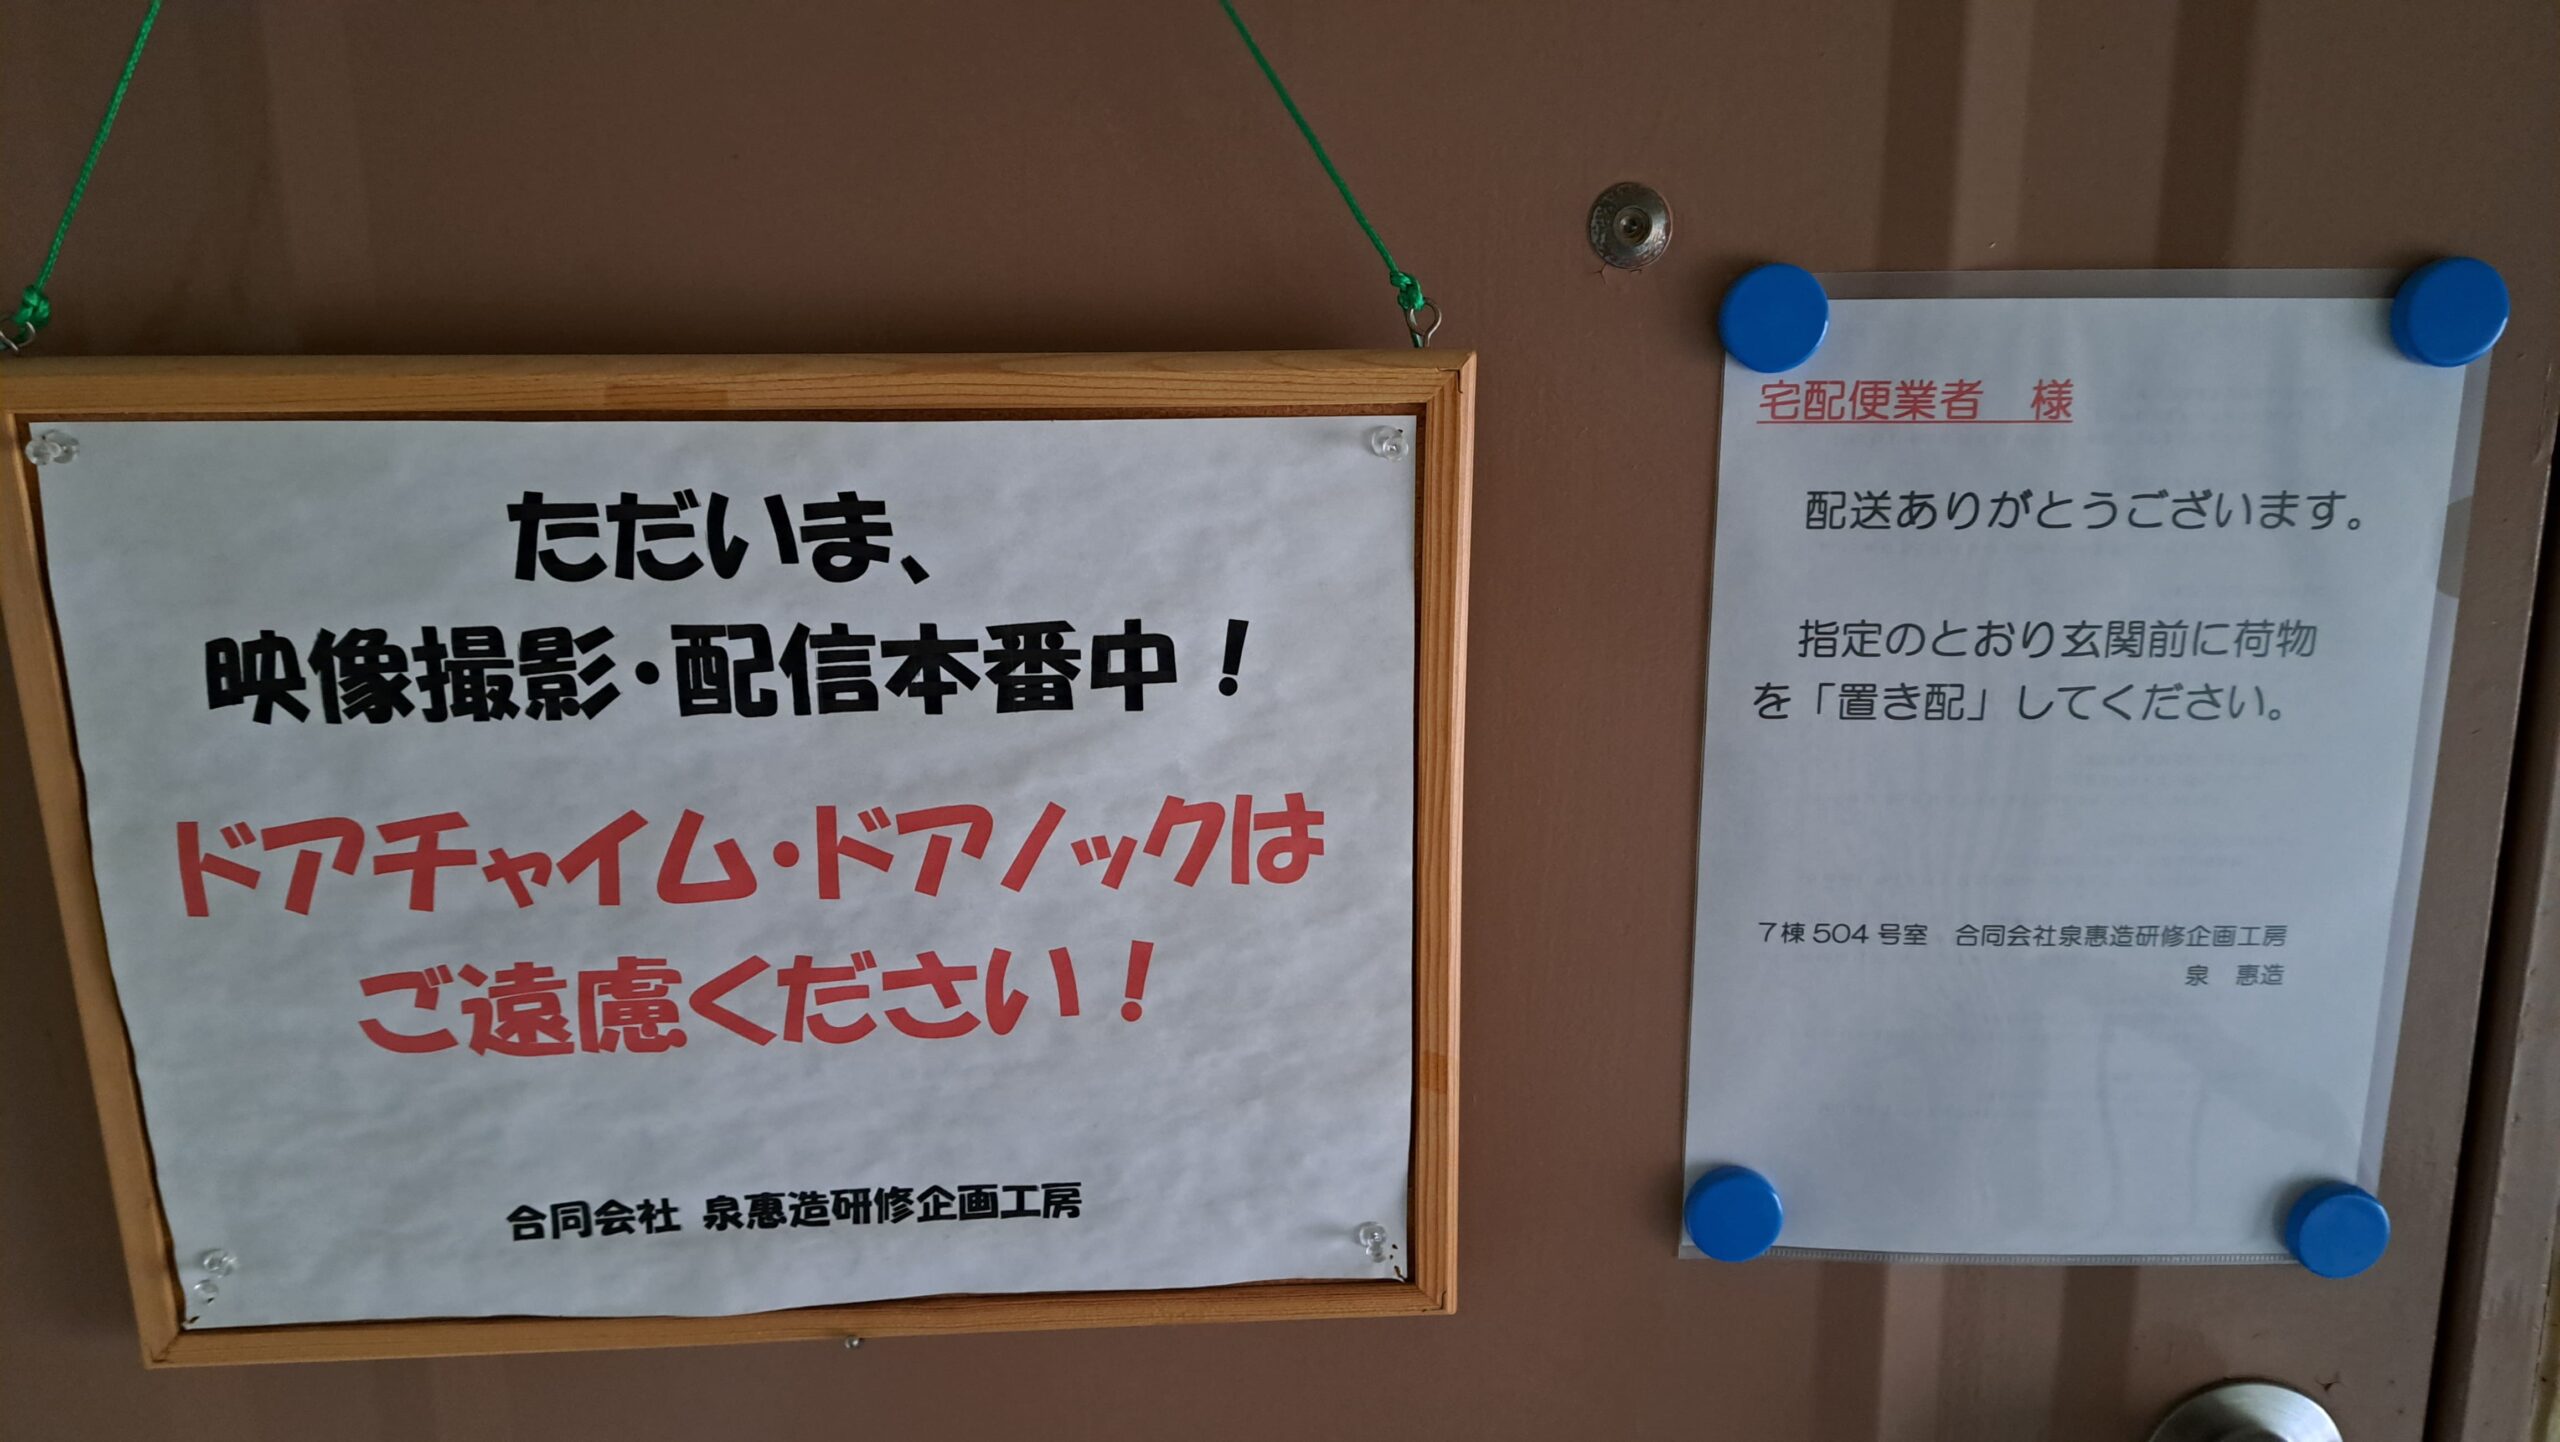 ただいま、
映像撮影・配信本番中！
ドアチャイム・ドアノックは
ご遠慮ください！
合同会社 泉惠造研修企画工房
宅配便業者　様
配送ありがとうございます。
指定のとおり玄関前に荷物
を「置き配」してください。
７棟504号室　合同会社泉惠造研修企画工房
泉　惠造